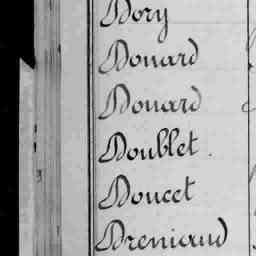 Dory
Douard
Douard
Doublet.
Doucet
Dreniaud